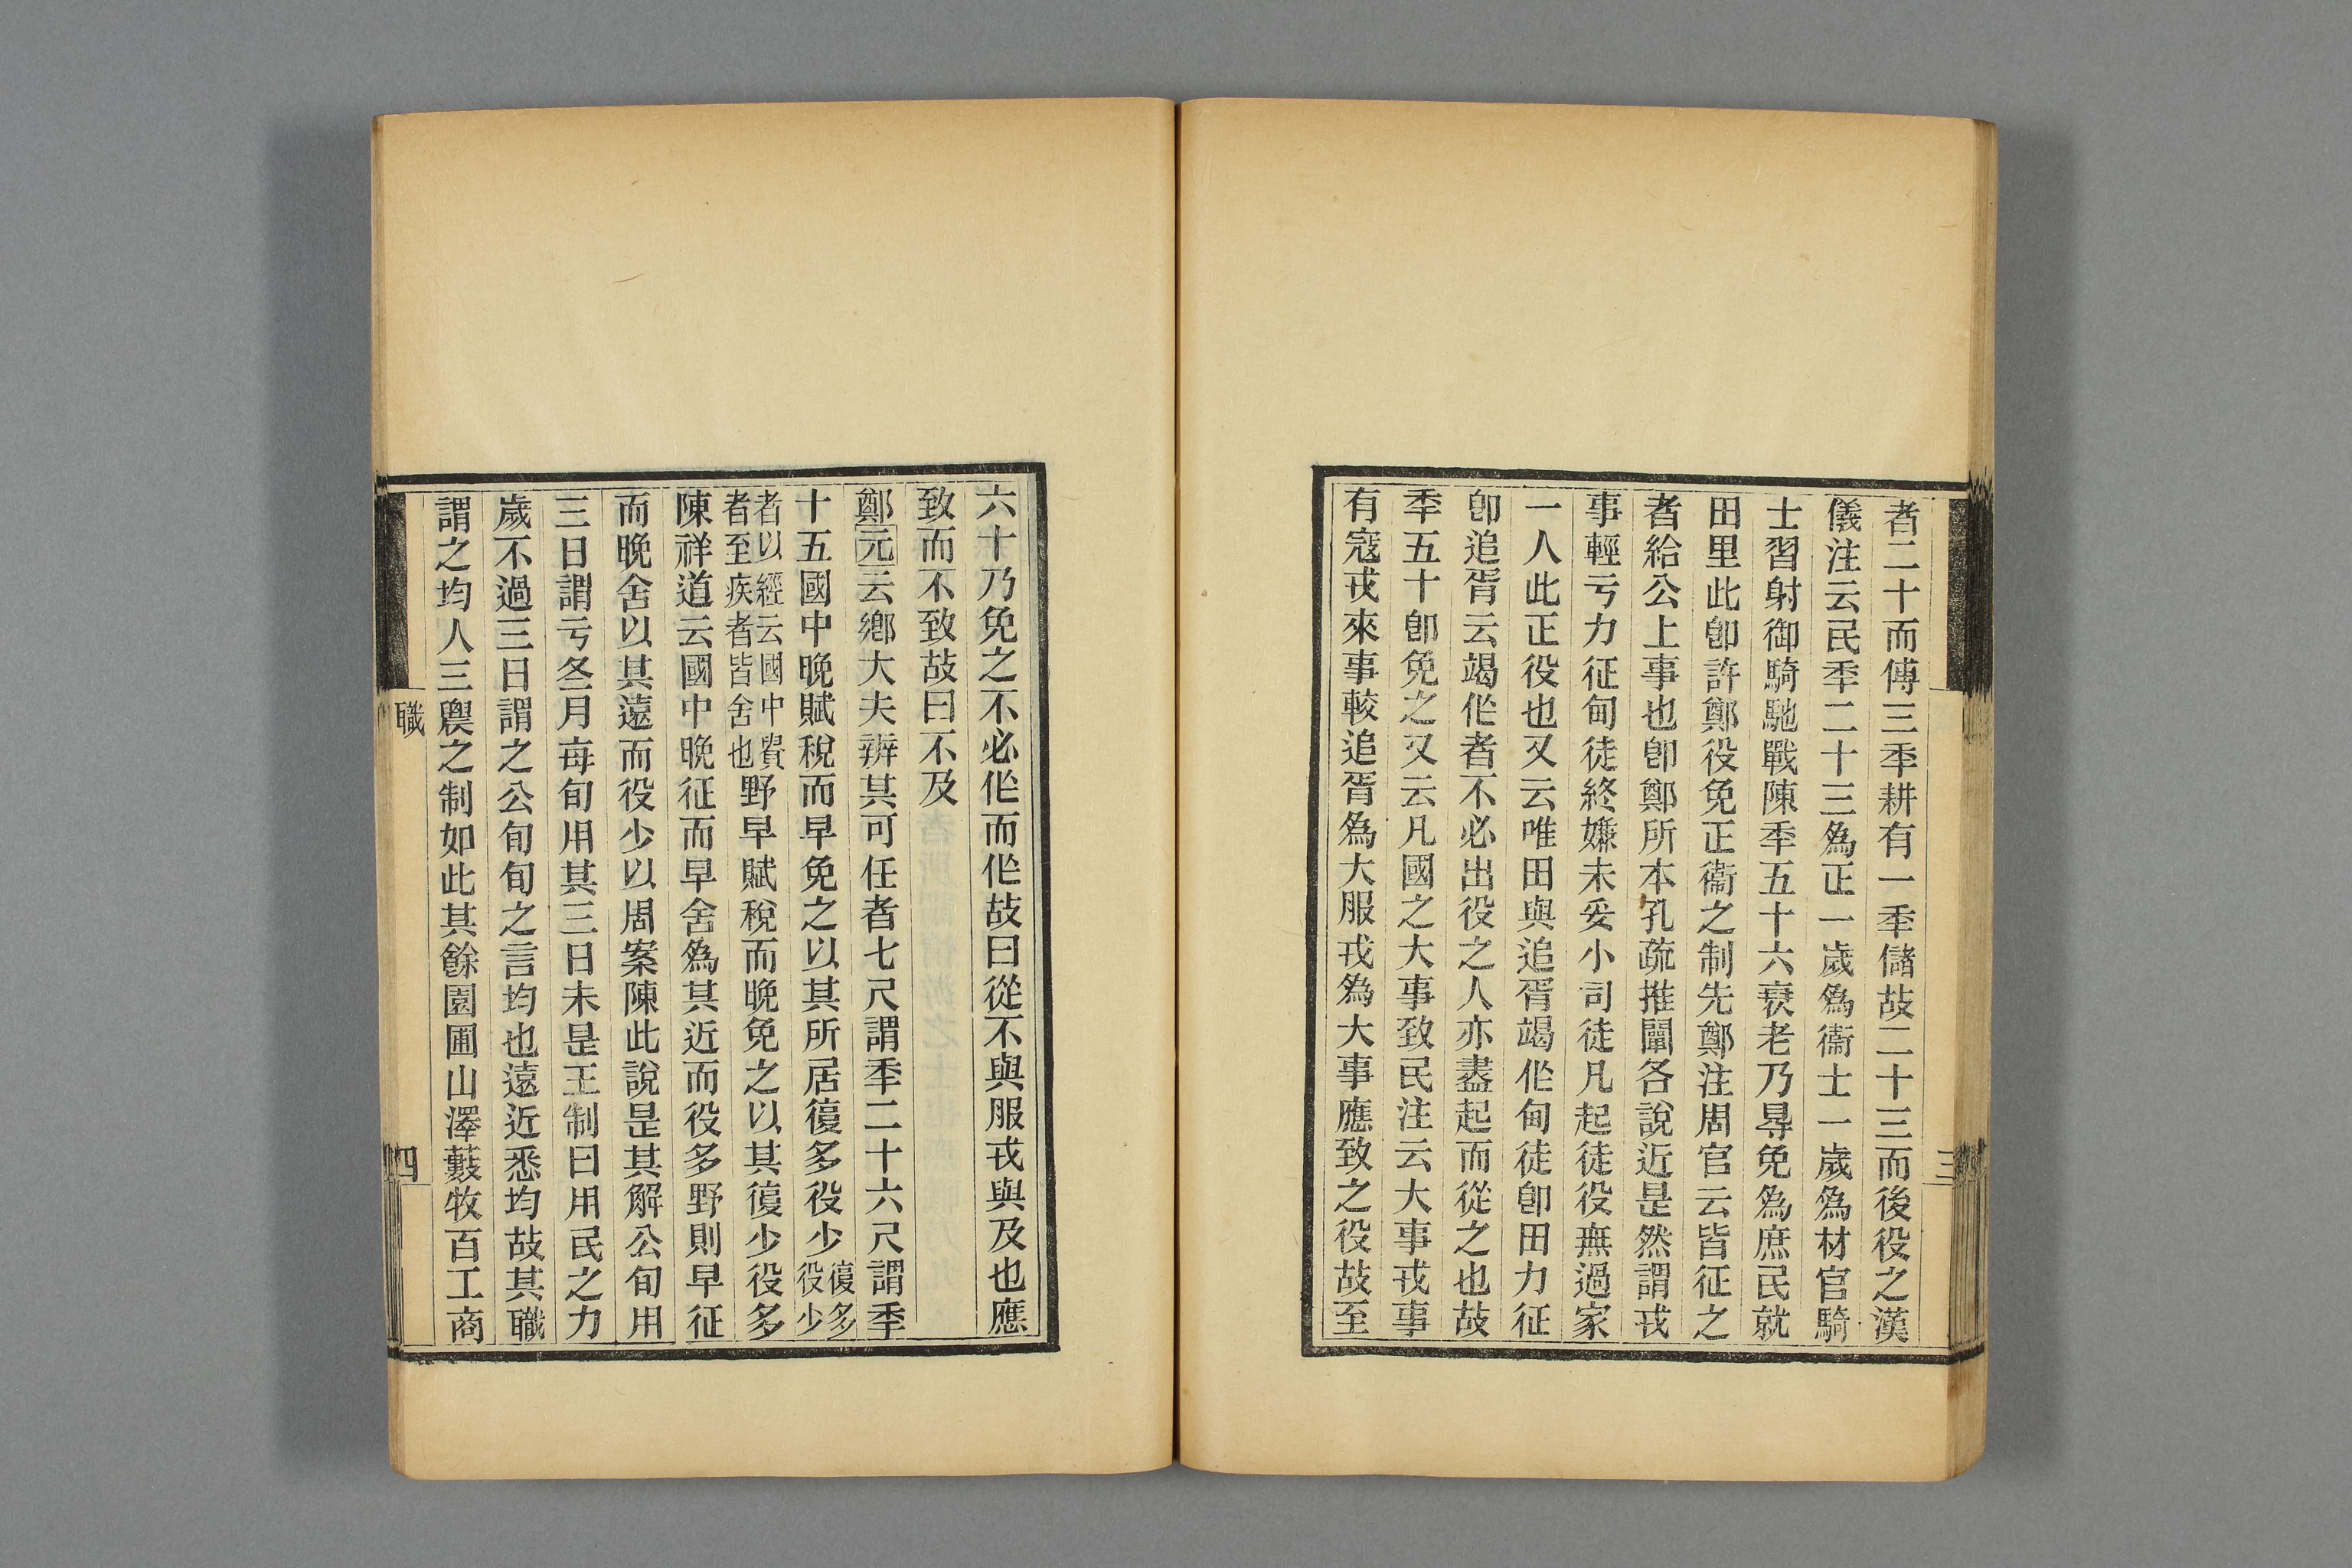 者二十而傅三秊耕有一秊儲故二十三而後役之漢
儀注云民秊二十三爲正一歲爲衞士一歲爲材官騎
士習射御騎馳戰陳秊五十六衰老乃㝵免爲庶民就
田里此卽許鄭役免正衞之制先鄭注周官云皆征之
者給公上事也卽鄭所本孔疏推闡各說近是然謂戎
事輕亏力征甸徒終嫌未妥小司徒凡起徒役無過家
一人此正役也又云唯田與追胥竭作甸徒卽田力征
卽追胥云竭作者不必出役之人亦盡起而從之也故
秊五十卽免之又云凡國之大事致民注云大事戎事
有寇戎來事較追胥爲大服戎爲大事應致之役故至
三
六十乃免之不必作而作故曰從不與服戎與及也應
致而不致故曰不及
鄭元云鄉大夫辨其可任者七尺謂秊二十六尺謂秊
十五國中晚賦稅而早免之以其所居復多役少復多役少
者以經云國中貴者至疾者皆舍也野早賦稅而晚免之以其復少役多
陳祥道云國中晚征而早舍爲其近而役多野則早征
而晚舍以其遠而役少以周案陳此說是其解公旬用
三日謂亏冬月每旬用其三日未是王制曰用民之力
歲不過三日謂之公旬旬之言均也遠近悉均故其職
謂之均人三農之制如此其餘園圃山澤藪牧百工商
職
四